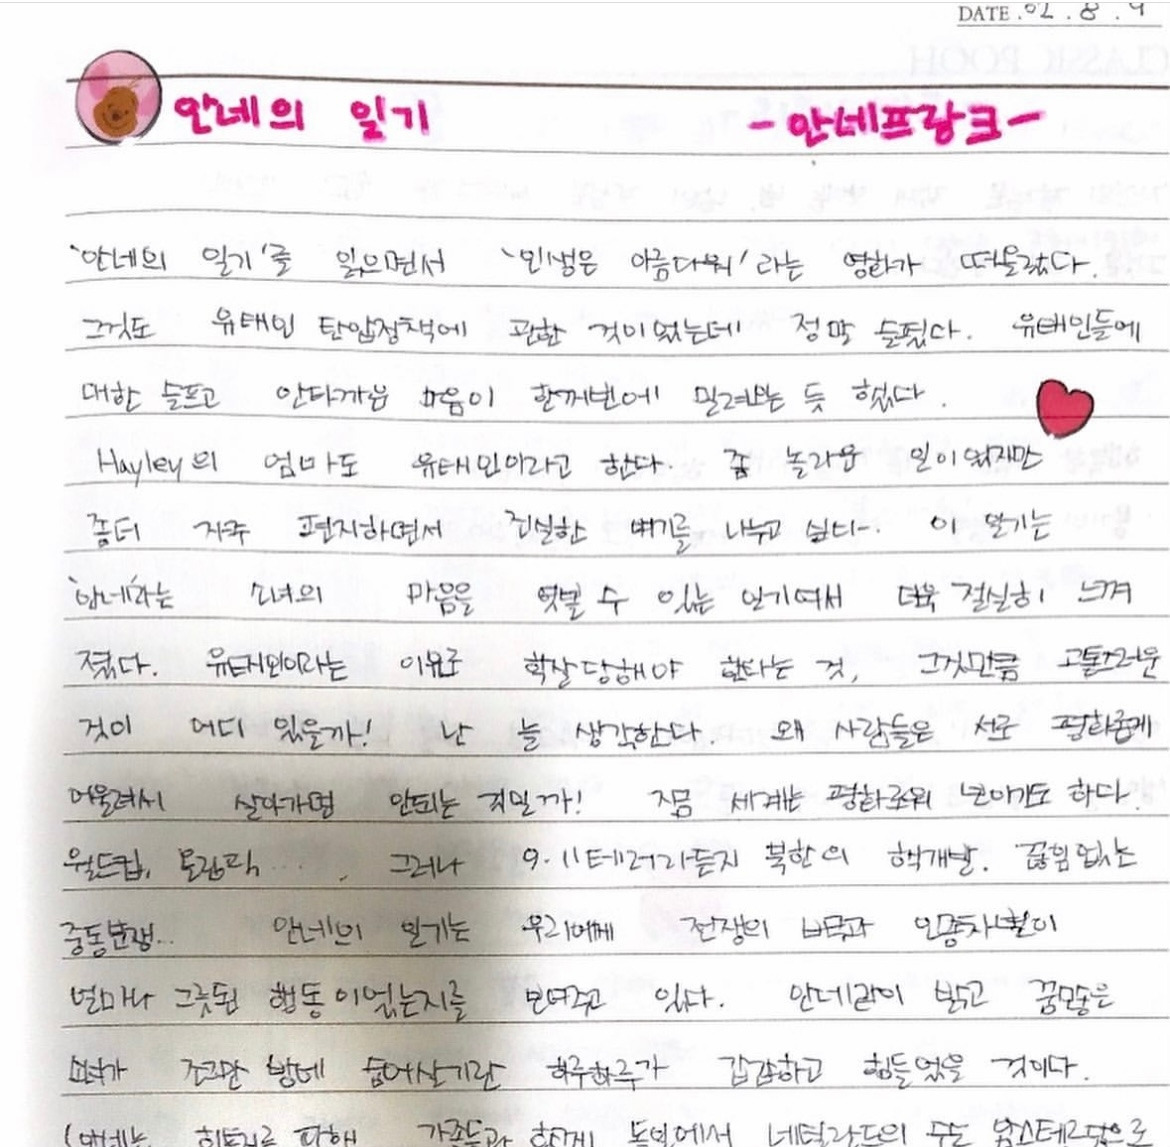 DATE. 02. 8. 9
안네의 일기 - 안네프랑크 -
'안네의 일기'를 읽으면서 '인생은 아름다워'라는 영화가 떠올랐다.
그것도 유태인 탄압정책에 관한 것이었는데 정말 슬펐다. 유태인들에
대한 슬프고 안타까운 마음이 한꺼번에 밀려오는 듯 했다.
Hayley의 엄마도 유태인이라고 한다. 좀 놀라운 일이었지만
좀더 자주 편지하면서 진실한 얘기를 나누고 싶다. 이 일기는
'안네'라는 소녀의 마음을 엿볼 수 있는 일기여서 더욱 절실히 느껴
졌다. 유태인이라는 이유로 학살당해야 한다는 것, 그것만큼 고통스러운
것이 어디 있을까! 난 늘 생각한다. 왜 사람들은 서로 평화롭게
어울려서 살아가면 안되는 것일까! 지금 세계는 평화로워 보이기도 하다.
월드컵, 올림픽.... 그러나 9·11테러라든지 북한의 핵개발. 끊임없는
중동분쟁... 안네의 일기는 우리에게 전쟁의 비극과 인종차별이
얼마나 그릇된 행동이었는지를 보여주고 있다. 안네같이 밝고 꿈많은
소녀가 조그만 방에 숨어살기란 하루하루가 갑갑하고 힘들었을 것이다.
(안네는 히틀러를 피해 가족들과 함께 독일에서 네덜란드의 수도 암스테르담으로